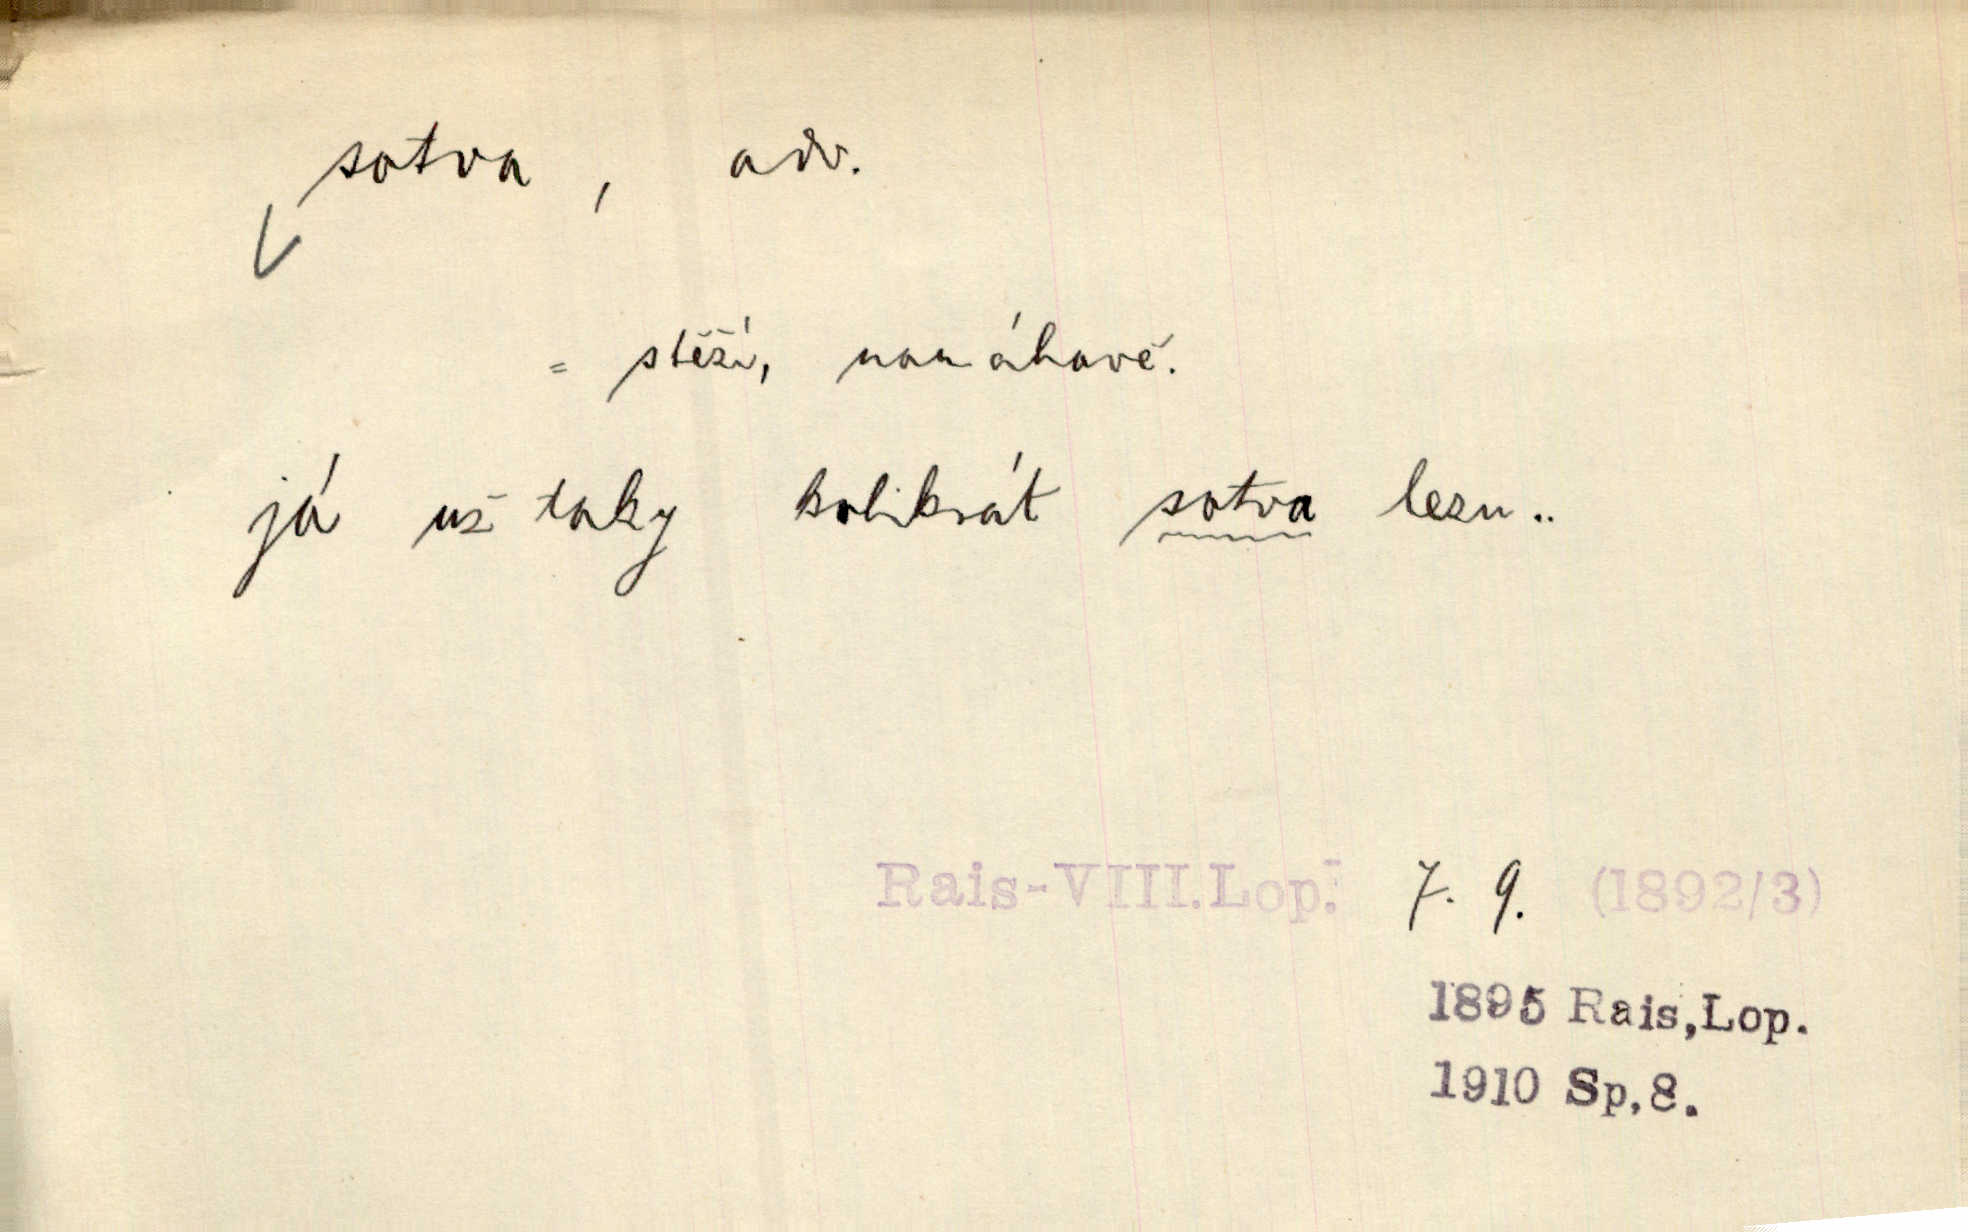 sotva, adv.
= stěží, namáhavě.
já už taky kolikrát sotva lezu..
Rais-VIII.Lop. 7. 9. (1892/3)
1895 Rais,Lop.
1910 Sp.8.